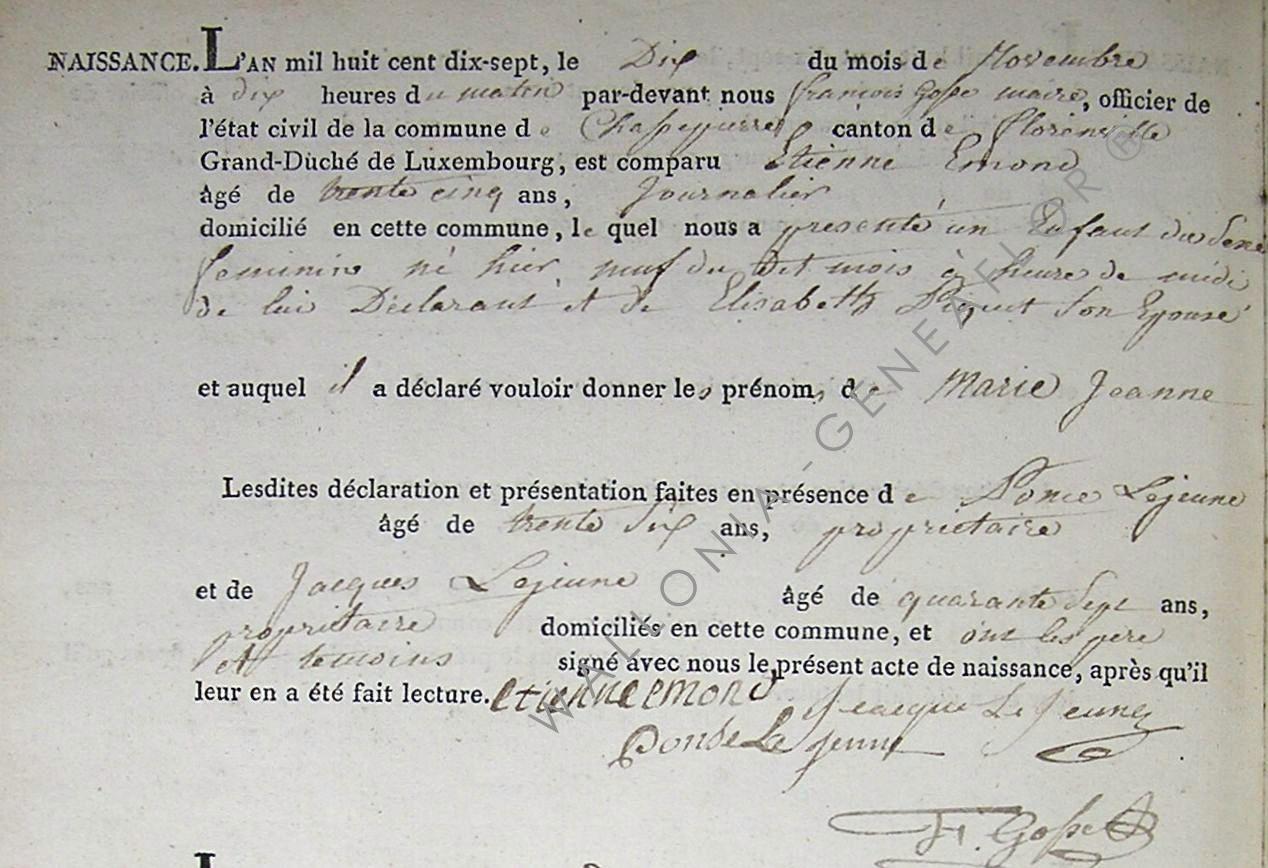 NAISSANCE. L'AN mil huit cent dix-sept, le Dix du mois de Novembre
à dix heures du matin par-devant nous francois Gofse maire, officier de
l'état civil de la commune de Chassepierre canton de florenville
Grand-Duché de Luxembourg, est comparu Etienne Emond
âgé de trente cinq ans, Journalier
domicilié en cette commune, le quel nous a presenté un Enfant du sexe
feminin né hier neuf du dit mois à heure de midi
de lui Déclarant et de Elisabeth son Epouse
et auquel il a déclaré vouloir donner les prénoms de Marie Jeanne
Lesdites déclaration et présentation faites en présence de Ponce Lejeune
âgé de trente six ans, propriétaire
et de Jacques Lejeune âgé de quarante sept ans,
propriétaire domiciliés en cette commune, et ont les père
et temoins signé avec nous le présent acte de naissance, après qu'il
leur en a été fait lecture. etienne emond Jeacque Le Jeune
Ponse Le jeune
F. Gofse
WALLONIA-GENEAFLOR ®